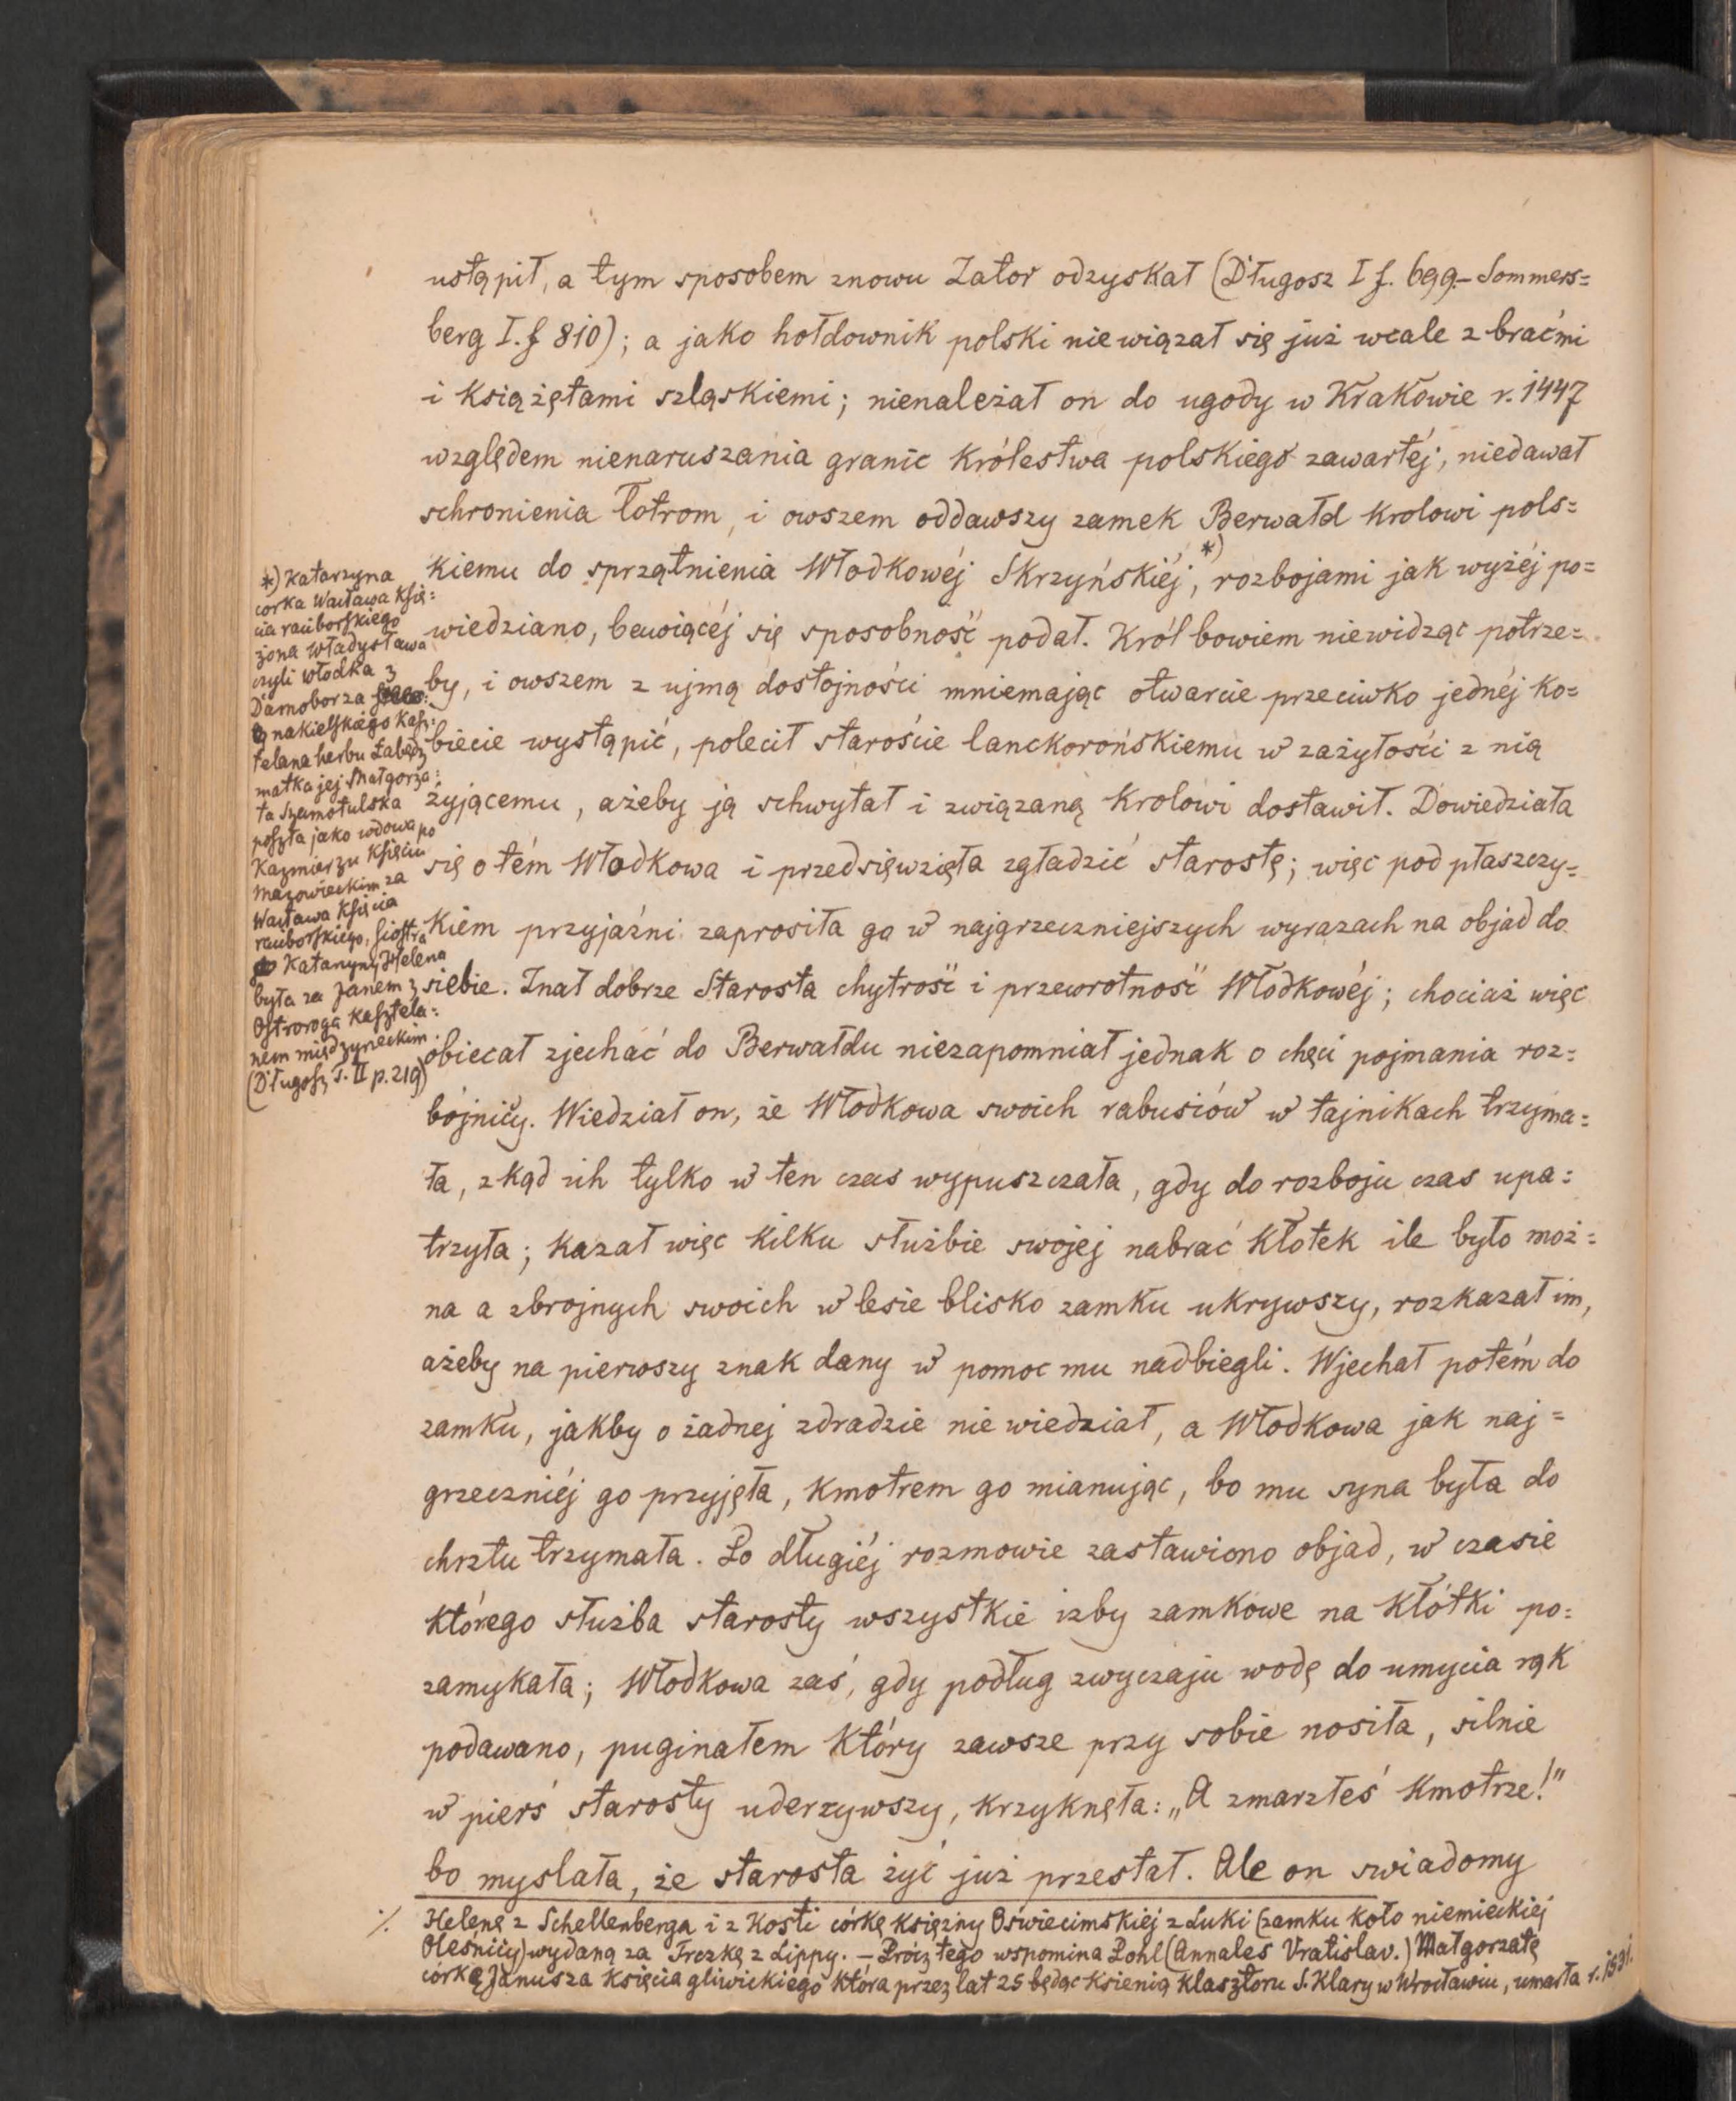 ustąpił, a tym sposobem znowu Zator odzyskał (Długosz I f. 699.– Sommers=
berg I. f 810); a jako hołdownik polski niewiązał się już wcale z braćmi
i książętami szląskiemi; nienależał on do ugody w Krakowie r. 1447
względem nienaruszania granic królestwa polskiego zawartéj, niedawał
schronienia łotrom, i owszem oddawszy zamek Berwałd krolowi pols=
kiemu do sprzątnienia Włodkowéj Skrzyńskiéj,*) rozbojami jak wyżéj po=
wiedziano, bawiącéj się sposobność podał. Król bowiem niewidząc potrze=
by, i owszem z ujmą dostojności mniemając otwarcie przeciwko jednéj ko=
biecie wystąpić, polecił staroście lanckorońskiemu w zażyłości z nią
żyjącemu, ażeby ją schwytał i związaną krolowi dostawił. Dowiedziała
się o tém Włodkowa i przedsięwzięła zgładzić starostę; więc pod płaszczy=
kiem przyjaźni zaprosiła go w najgrzeczniejszych wyrazach na objad do
siebie. Znał dobrze Starosta chytrość i przewrotność Włodkowéj; chociaż więc
obiecał zjechać do Berwałdu niezapomniał jednak o chęci pojmania roz=
bójnicy. Wiedział on, że Włodkowa swoich rabusiów w tajnikach trzyma=
ła, zkąd ich tylko w ten czas wypuszczała, gdy do rozboju czas upa=
trzyła; kazał więc kilku służbie swojej nabrać kłotek ile było moż=
na a zbrojnych swoich w lesie blisko zamku ukrywszy, rozkazał im,
ażeby na pierwszy znak dany w pomoc mu nadbiegli. Wjechał potém do
zamku, jakby o żadnej zdradzie nie wiedział, a Włodkowa jak naj=
grzeczniéj go przyjęła, kmotrem go mianując, bo mu syna była do
chrztu trzymała. Po długiéj rozmowie zastawiono objad, w czasie
którego służba starosty wszystkie izby zamkowe na kłótki po=
zamykała; Włodkowa zaś, gdy podług zwyczaju wodę do umycia rąk
podawano, puginałem który zawsze przy sobie nosiła, silnie
w pierś starosty uderzywszy, krzyknęła: „A zmarzłeś kmotrze!”
bo myslała, że starosta żyć już przestał. Ale on swiadomy
*) Katarzyna
corka Wacława Księ=
cia raciborskiego
żona Władysława
czyli Włodka z
Damoborza
nakielskiego Kasz=
telana herbu Łabędź
matka jej Małgorza=
ta Szamotulska
poszła jako wdowa po
Kazmierzu Księciu
Mazowieckim za
Wacława Księcia
raciborskiego, siostra
Katarzyny Helena
była za Janem z
Ostroroga Kasztela=
nem międzyrzeckim.
(Długosz T. II p. 219)
·/. Helenę z Schellenberga i z Kosti córkę księżny Oświecimskiej z Luki (zamku koło niemieckiéj
Oleśnicy) wydaną za Trczkę z Lippy. – Prócz tego wspomina Pohl (Annales Vratislav.) Małgorzatę
córkę Janusza Księcia gliwickiego która przez lat 25 będąc ksienią klasztoru S. Klary w Wrocławiu, umarła r. 1531.